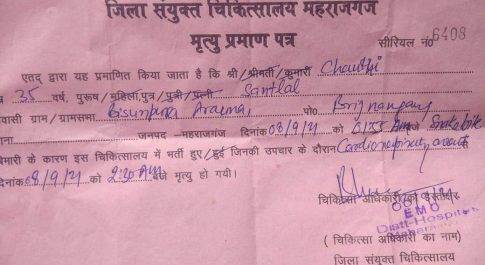 जिला संयुक्त चिकित्सालय महराजगंज
मृत्यु प्रमाण पत्र
सीरियल नं० 6408
एतद् द्वारा यह प्रमाणित किया जाता है कि श्री/श्रीमती/कुमारी
35 वर्ष, पुरूष/महिला,पुत्र/पुत्री/पत्नी Santlal
वासी ग्राम/ग्रामसभा Bisunpura पो०
जनपद -महराजगंज दिनांक 08/9/21 को Snake bite
मारी के कारण इस चिकित्सालय में भर्ती हुए/हुई जिनकी उपचार के दौरान Cardiorespiratory arrest
दिनांक 08/9/21 को 2:30 AM बजे मृत्यु हो गयी।
चिकित्सा अधिकारी का हस्ताक्षर
EMO
Distt-Hospital
Maharajganj
( चिकित्सा अधिकारी का नाम)
जिला संयुक्त चिकित्सालय